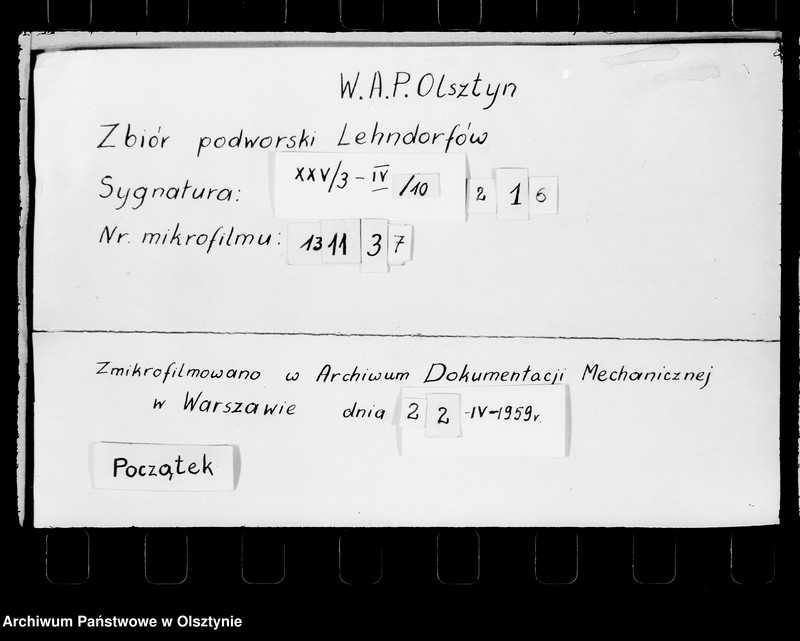 W.A.P. Olsztyn
Zbiór podworski Lehndorfów
Sygnatura: XXV/3 - IV /10 2 1 6
Nr. mikrofilmu: 1311 3 7
Zmikrofilmowano w Archiwum Dokumentacji Mechanicznej
w Warszawie dnia 2 2 -IV-1959r.
Początek
Archiwum Państwowe w Olsztynie